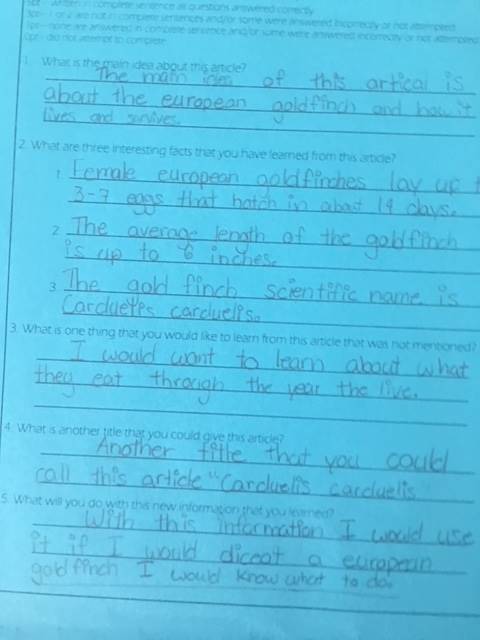 5pt - written in complete sentence all questions answered correctly
3pt - 1 or 2 are not in complete sentences and/or some were answered incorrectly or not attempted
1pt - none are answered in complete sentence and/or some were answered incorrectly or not attempted
0pt - did not attempt to complete
1. What is the main idea about this article?
The main idea of this artical is
about the european goldfinch and how it
lives and survives.
2. What are three interesting facts that you have learned from this article?
1. Female european goldfinches lay up
3-7 eggs that hatch in about 14 days.
2. The average length of the goldfinch
is up to 6 inches.
3. The gold finch scientific name is
Carduelis carduelis.
3. What is one thing that you would like to learn from this article that was not mentioned?
I would want to learn about what
they eat through the year the live.
4. What is another title that you could give this article?
Another title that you could
call this article "Carduelis carduelis
5. What will you do with this new information that you learned?
With this information I would use
it if I would diceat a european
goldfinch I would know what to do.